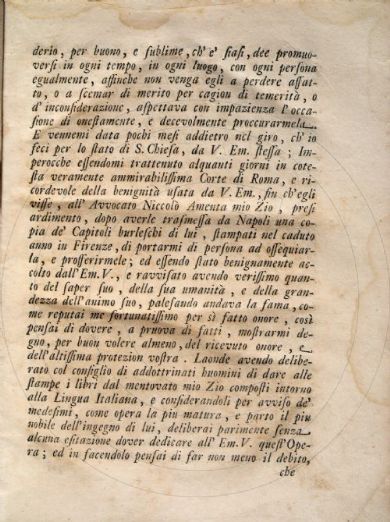 derio, per buono, e sublime, ch' e' siasi, dee promuo-
versi in ogni tempo, in ogni luogo, con ogni persona
egualmente, affinche non venga egli a perdere affat-
to, o a scemar di merito per cagion di temerità, o
d' inconsiderazione, aspettava con impazienza l' occa-
sione di onestamente, e decevolmente proccurarmela.
E vennemi data pochi mesi addietro nel giro, ch' io
feci per lo Stato di S. Chiesa, da V. Em. stessa; Im-
perocche essendomi trattenuto alquanti giorni in cote-
sta veramente ammirabilissima Corte di Roma, e ri-
cordevole della benignità usata da V. Em., fin ch' egli
visse, all' Avvocato Niccolò Amenta mio Zio, presi
ardimento, dopo averle trasmessa da Napoli una co-
pia de' Capitoli burleschi di lui, stampati nel caduto
anno in Firenze, di portarmi di persona ad ossequiar-
la, e profferirmele; ed essendo stato benignamente ac-
colto dall' Em. V., e ravvisato avendo verissimo quan-
to del saper suo, della sua umanità, e della gran-
dezza dell' animo suo, palesando andava la fama, co-
me reputai me fortunatissimo per sì fatto onore, così
pensai di dovere, a pruova di fatti, mostrarmi de-
gno, per buon volere almeno, del ricevuto onore, e
dell' altissima protezion vostra. Laonde avendo delibe-
rato col consiglio di addottrinati huomini di dare alle
stampe i libri dal mentovato mio Zio composti intorno
alla Lingua Italiana, e considerandoli per avviso de'
medesimi, come opera la piu matura, e parto il piu
nobile dell' ingegno di lui, deliberai parimente senza
alcuna esitazione dover dedicare all' Em. V. quest' Ope-
ra; ed in facendolo pensai di far non meno il debito,
che